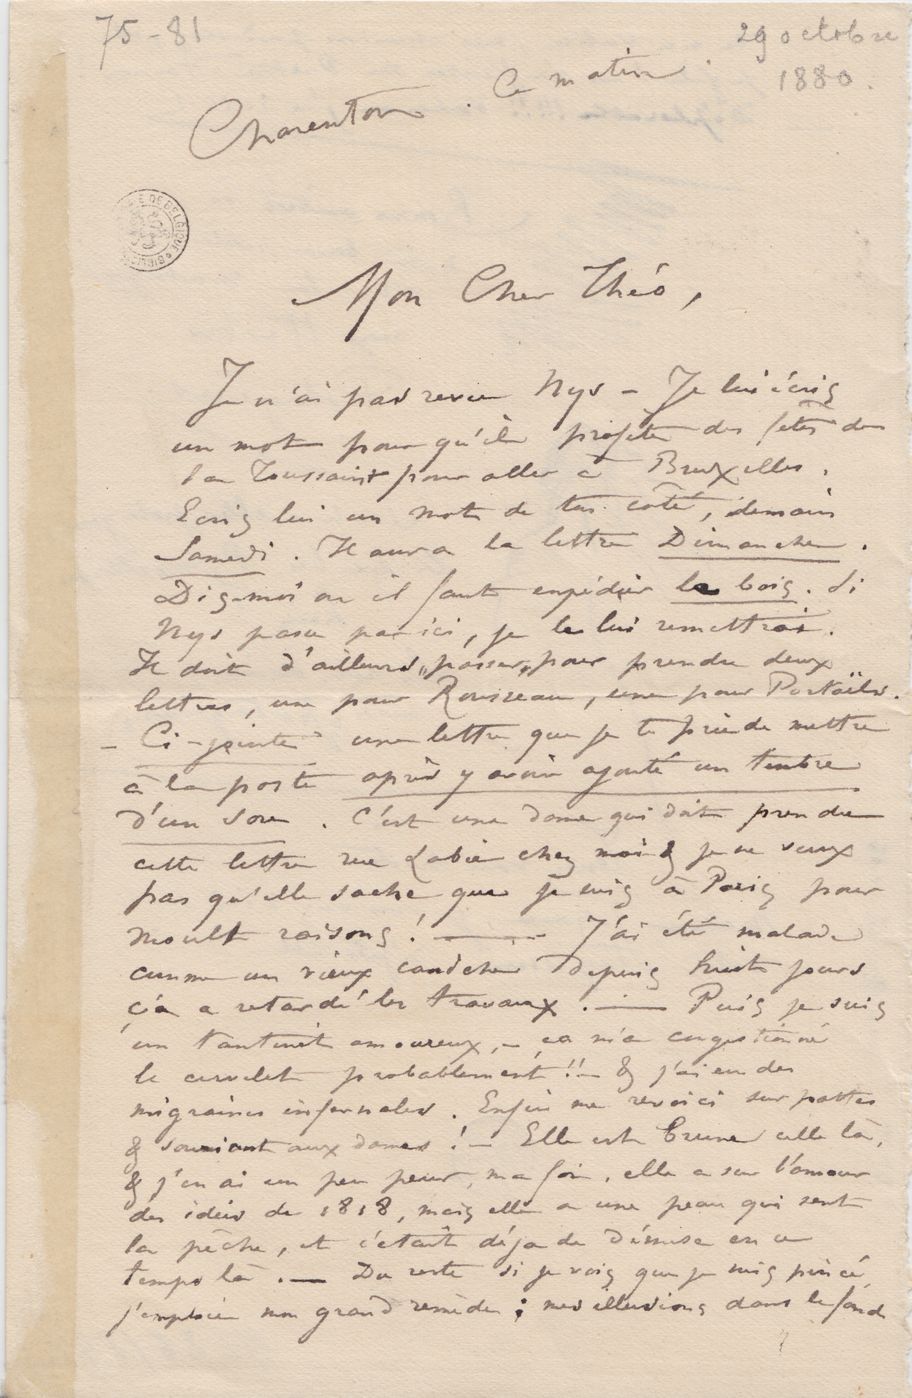 75-81
29 octobre
1880.
Charenton. Ce matin.
BELGIQUE
Mon Cher Théo,
Je n'ai pas revu Nys – Je lui écris
un mot pour qu'il profite des fêtes de
la Toussaint pour aller à Bruxelles.
Ecris lui un mot de ton côté, demain
Samedi. Il aura la lettre Dimanche.
Dis-moi où il faut expédier le bois. Si
Nys passe par ici, je le lui remettrai.
Il doit d'ailleurs „passer„ pour prendre deux
lettres, une pour Rousseau, une pour Portaëls.
– Ci-jointe une lettre que je te prie de mettre
à la poste après y avoir ajouté un timbre
d'un sou. C'est une dame qui doit prendre
cette lettre rue Labie chez moi & je ne veux
pas qu'elle sache que je suis à Paris pour
moult raisons! — J'ai été malade
comme un vieux depuis huit jours
ça a retardé les travaux. — Puis je suis
un tantinet amoureux, – ça m'a congestionné
le cervelet probablement!! – & j'ai eu des
migraines infernales. Enfin me revoici sur pattes
& souriant aux dames! – Elle est brune celle là,
& j'en ai un peu peur, ma foi, elle a sur l'amour
des idées de 1818, mais elle a une peau qui sent
la pêche, et c'était déjà de mise en ce
temps là. — Du reste si je vois que je suis pincé,
j'emploie mon grand remède; mes illusions dans le fond